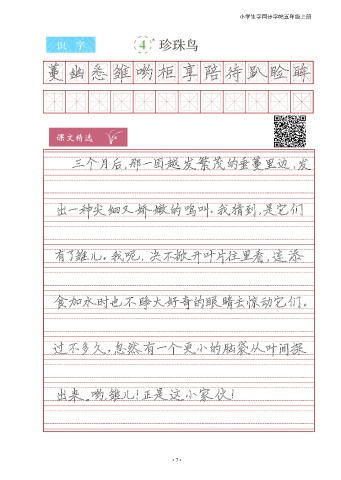 小学生字同步字帖五年级上册
识 字
4 珍珠鸟
蔓 幽 悉 雏 哟 柜 享 陪 待 趴 脸 眸
课文精选
三个月后,那一团越发繁茂的垂蔓里边,发
出一种尖细又娇嫩的鸣叫。我猜到,是它们
有了雏儿。我呢,决不掀开叶片往里看,连添
食加水时也不睁大好奇的眼睛去惊动它们。
过不多久,忽然有一个更小的脑袋从叶间探
出来。哟,雏儿!正是这小家伙!
·7·